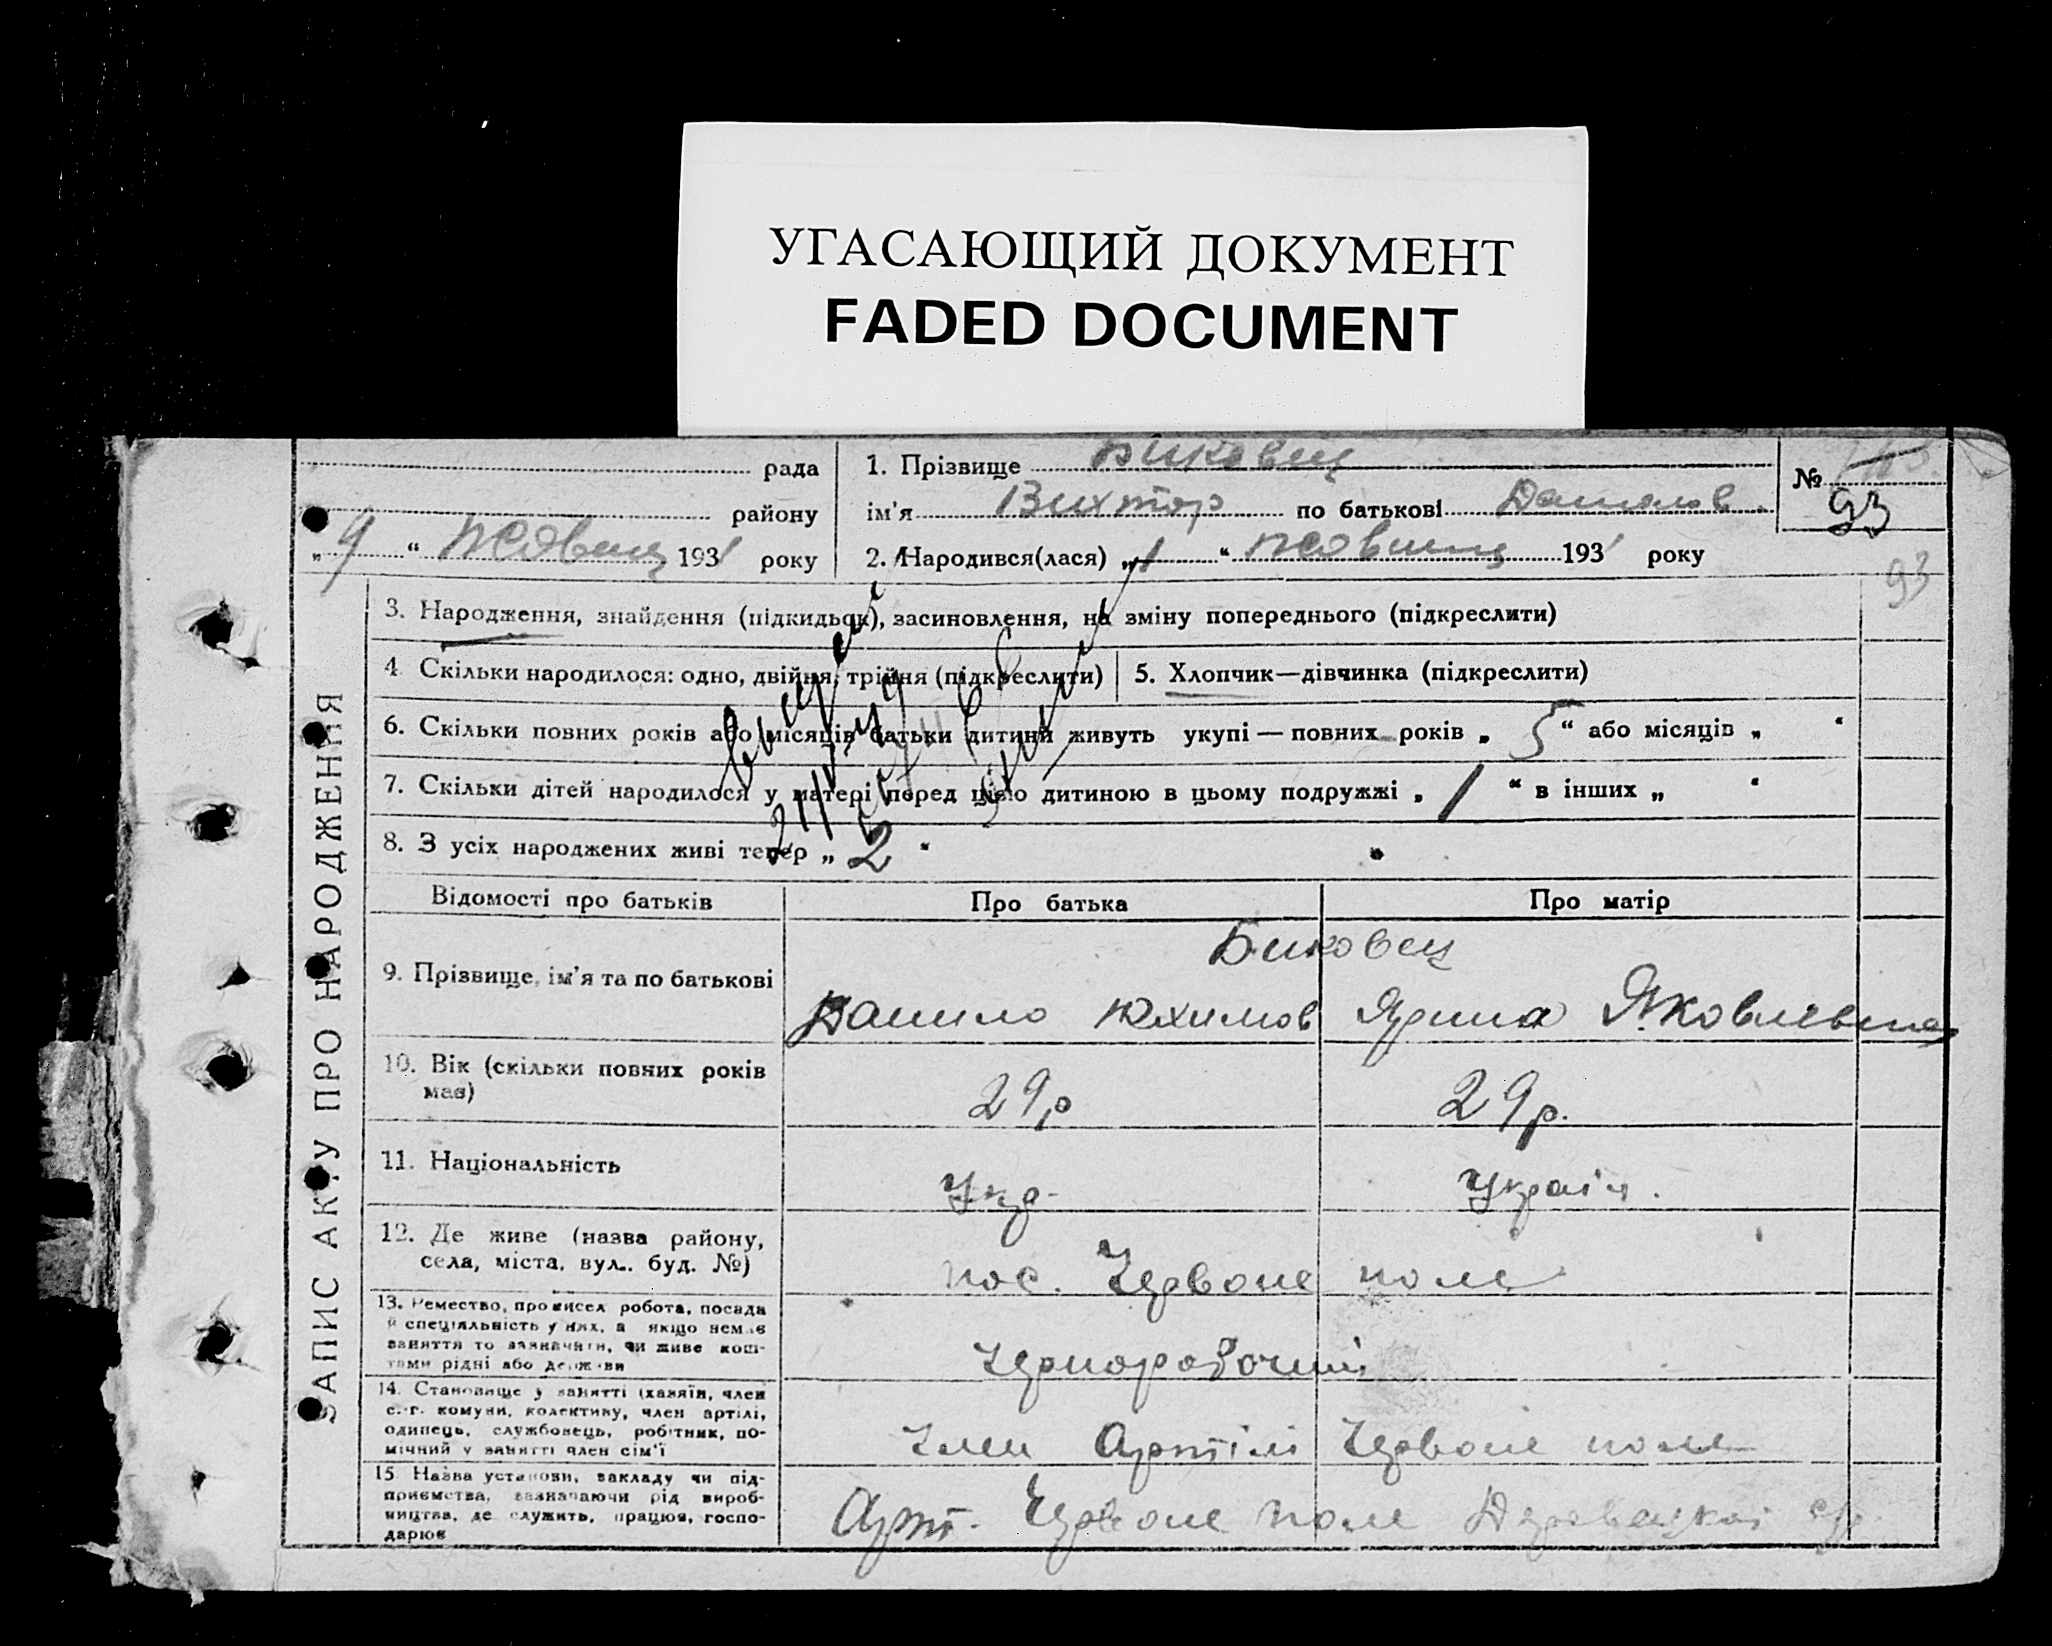 УГАСАЮЩИЙ ДОКУМЕНТ
FADED DOCUMENT
рада
району
„ 9 “ Жовтц 1931 року
1. Прізвище Биковец
ім’я Вихтор по батькові Данилов.
2. Народився(лася) „ 1 “ Жовтц 1931 року
№
93
93
ЗАПИС АКТУ ПРО НАРОДЖЕННЯ
3. Народження, знайдення (підкидьок), засиновлення, на зміну попереднього (підкреслити)
4. Скільки народилося: одно, двійня, трійня (підкреслити)
5. Хлопчик—дівчинка (підкреслити)
6. Скільки повних років або місяців батьки дитини живуть укупі — повних років „ 5 “ або місяців „ “
7. Скільки дітей народилося у матері перед цією дитиною в цьому подружжі „ 1 “ в інших „ “
8. З усіх народжених живі тепер „ 2 “
Відомості про батьків Про батька Про матір
9. Прізвище, ім’я та по батькові
Биковец
Данило Юхимов Ярина Яковлевна
10. Вік (скільки повних років має)
29р 29р.
11. Національність
Укр- Україн.
12. Де живе (назва району, села, міста, вул., буд. №)
пос. Червоне поле
13. Ремество, промисел робота, посада й спеціяльність у них, а якщо немає заняття то зазначити, чи живе коштами рідні або держави
Чернорабочий
14. Становище у занятті (хазяїн, член с.-г. комуни, колективу, член артілі, одинець, службовець, робітник, помічний у занятті член сім’ї
Член Артілі Червоне поле
15 Назва установи, закладу чи підприємства, зазначаючи рід виробництва, де служить, працює, господарює
Арт. Червоне поле